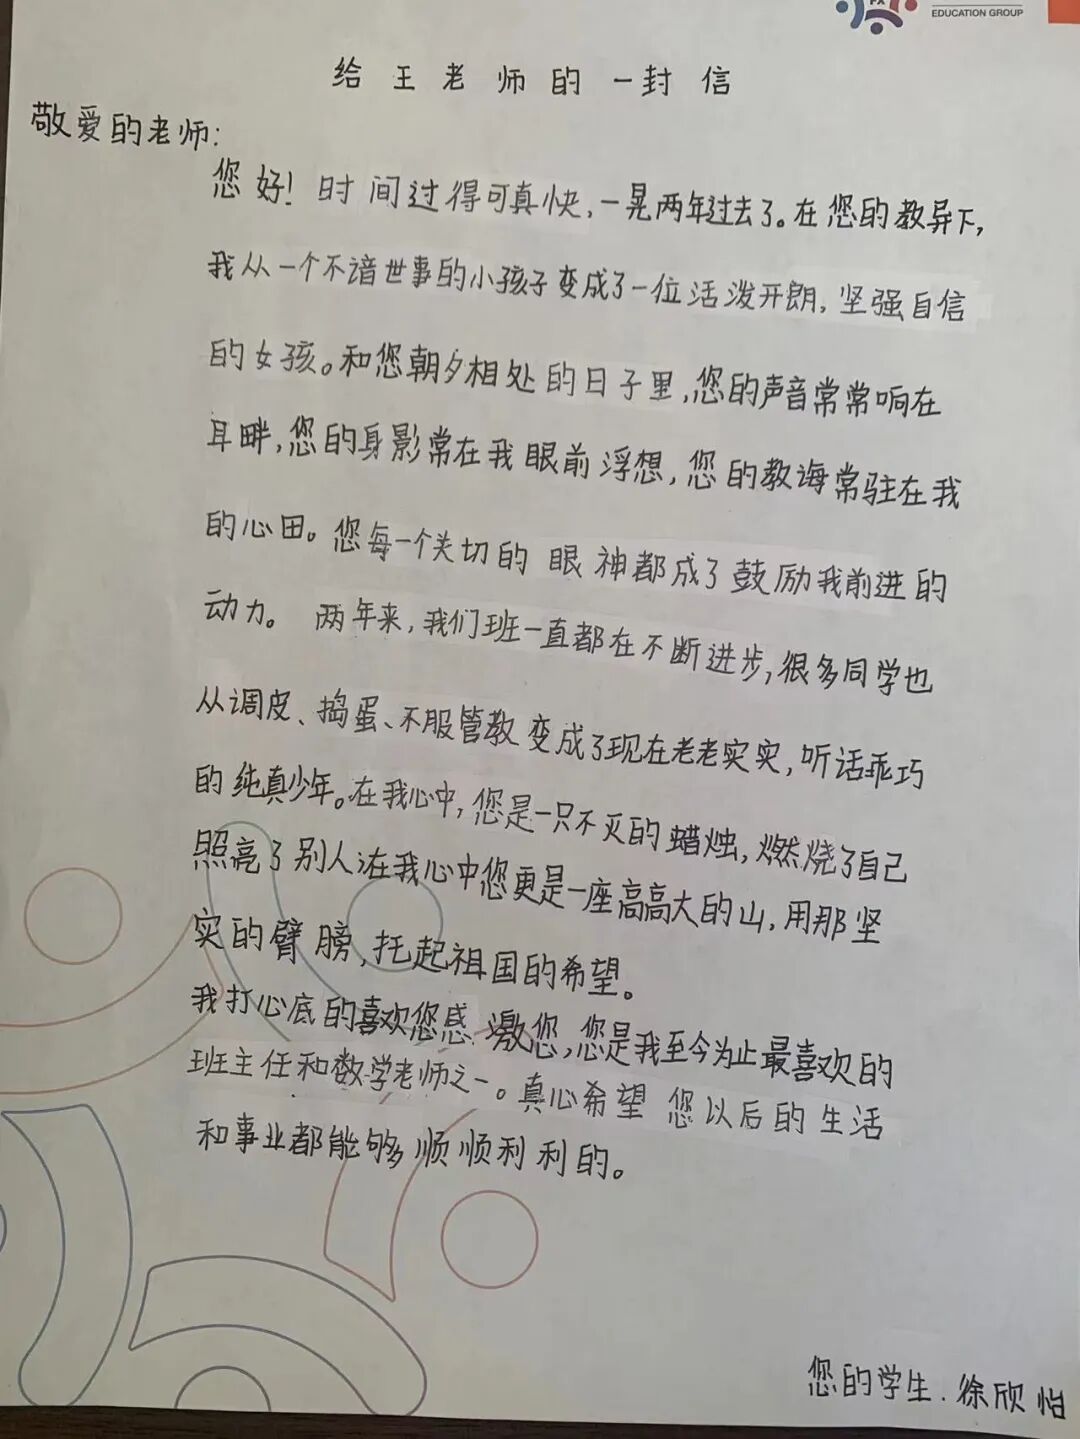 EDUCATION GROUP
给王老师的一封信
敬爱的老师:
您好!时间过得可真快,一晃两年过去了。在您的教导下,
我从一个不谙世事的小孩子变成了一位活泼开朗,坚强自信
的女孩。和您朝夕相处的日子里,您的声音常常响在
耳畔,您的身影常在我眼前浮想,您的教诲常驻在我
的心田。您每一个关切的眼神都成了鼓励我前进的
动力。两年来,我们班一直都在不断进步,很多同学也
从调皮、捣蛋、不服管教变成了现在老老实实,听话乖巧
的纯真少年。在我心中,您是一只不灭的蜡烛,燃烧了自己
照亮了别人在我心中您更是一座高高大的山,用那坚
实的臂膀,托起祖国的希望。
我打心底的喜欢您感激您,您是我至今为止最喜欢的
班主任和数学老师之一。真心希望您以后的生活
和事业都能够顺顺利利的。
您的学生.徐欣怡